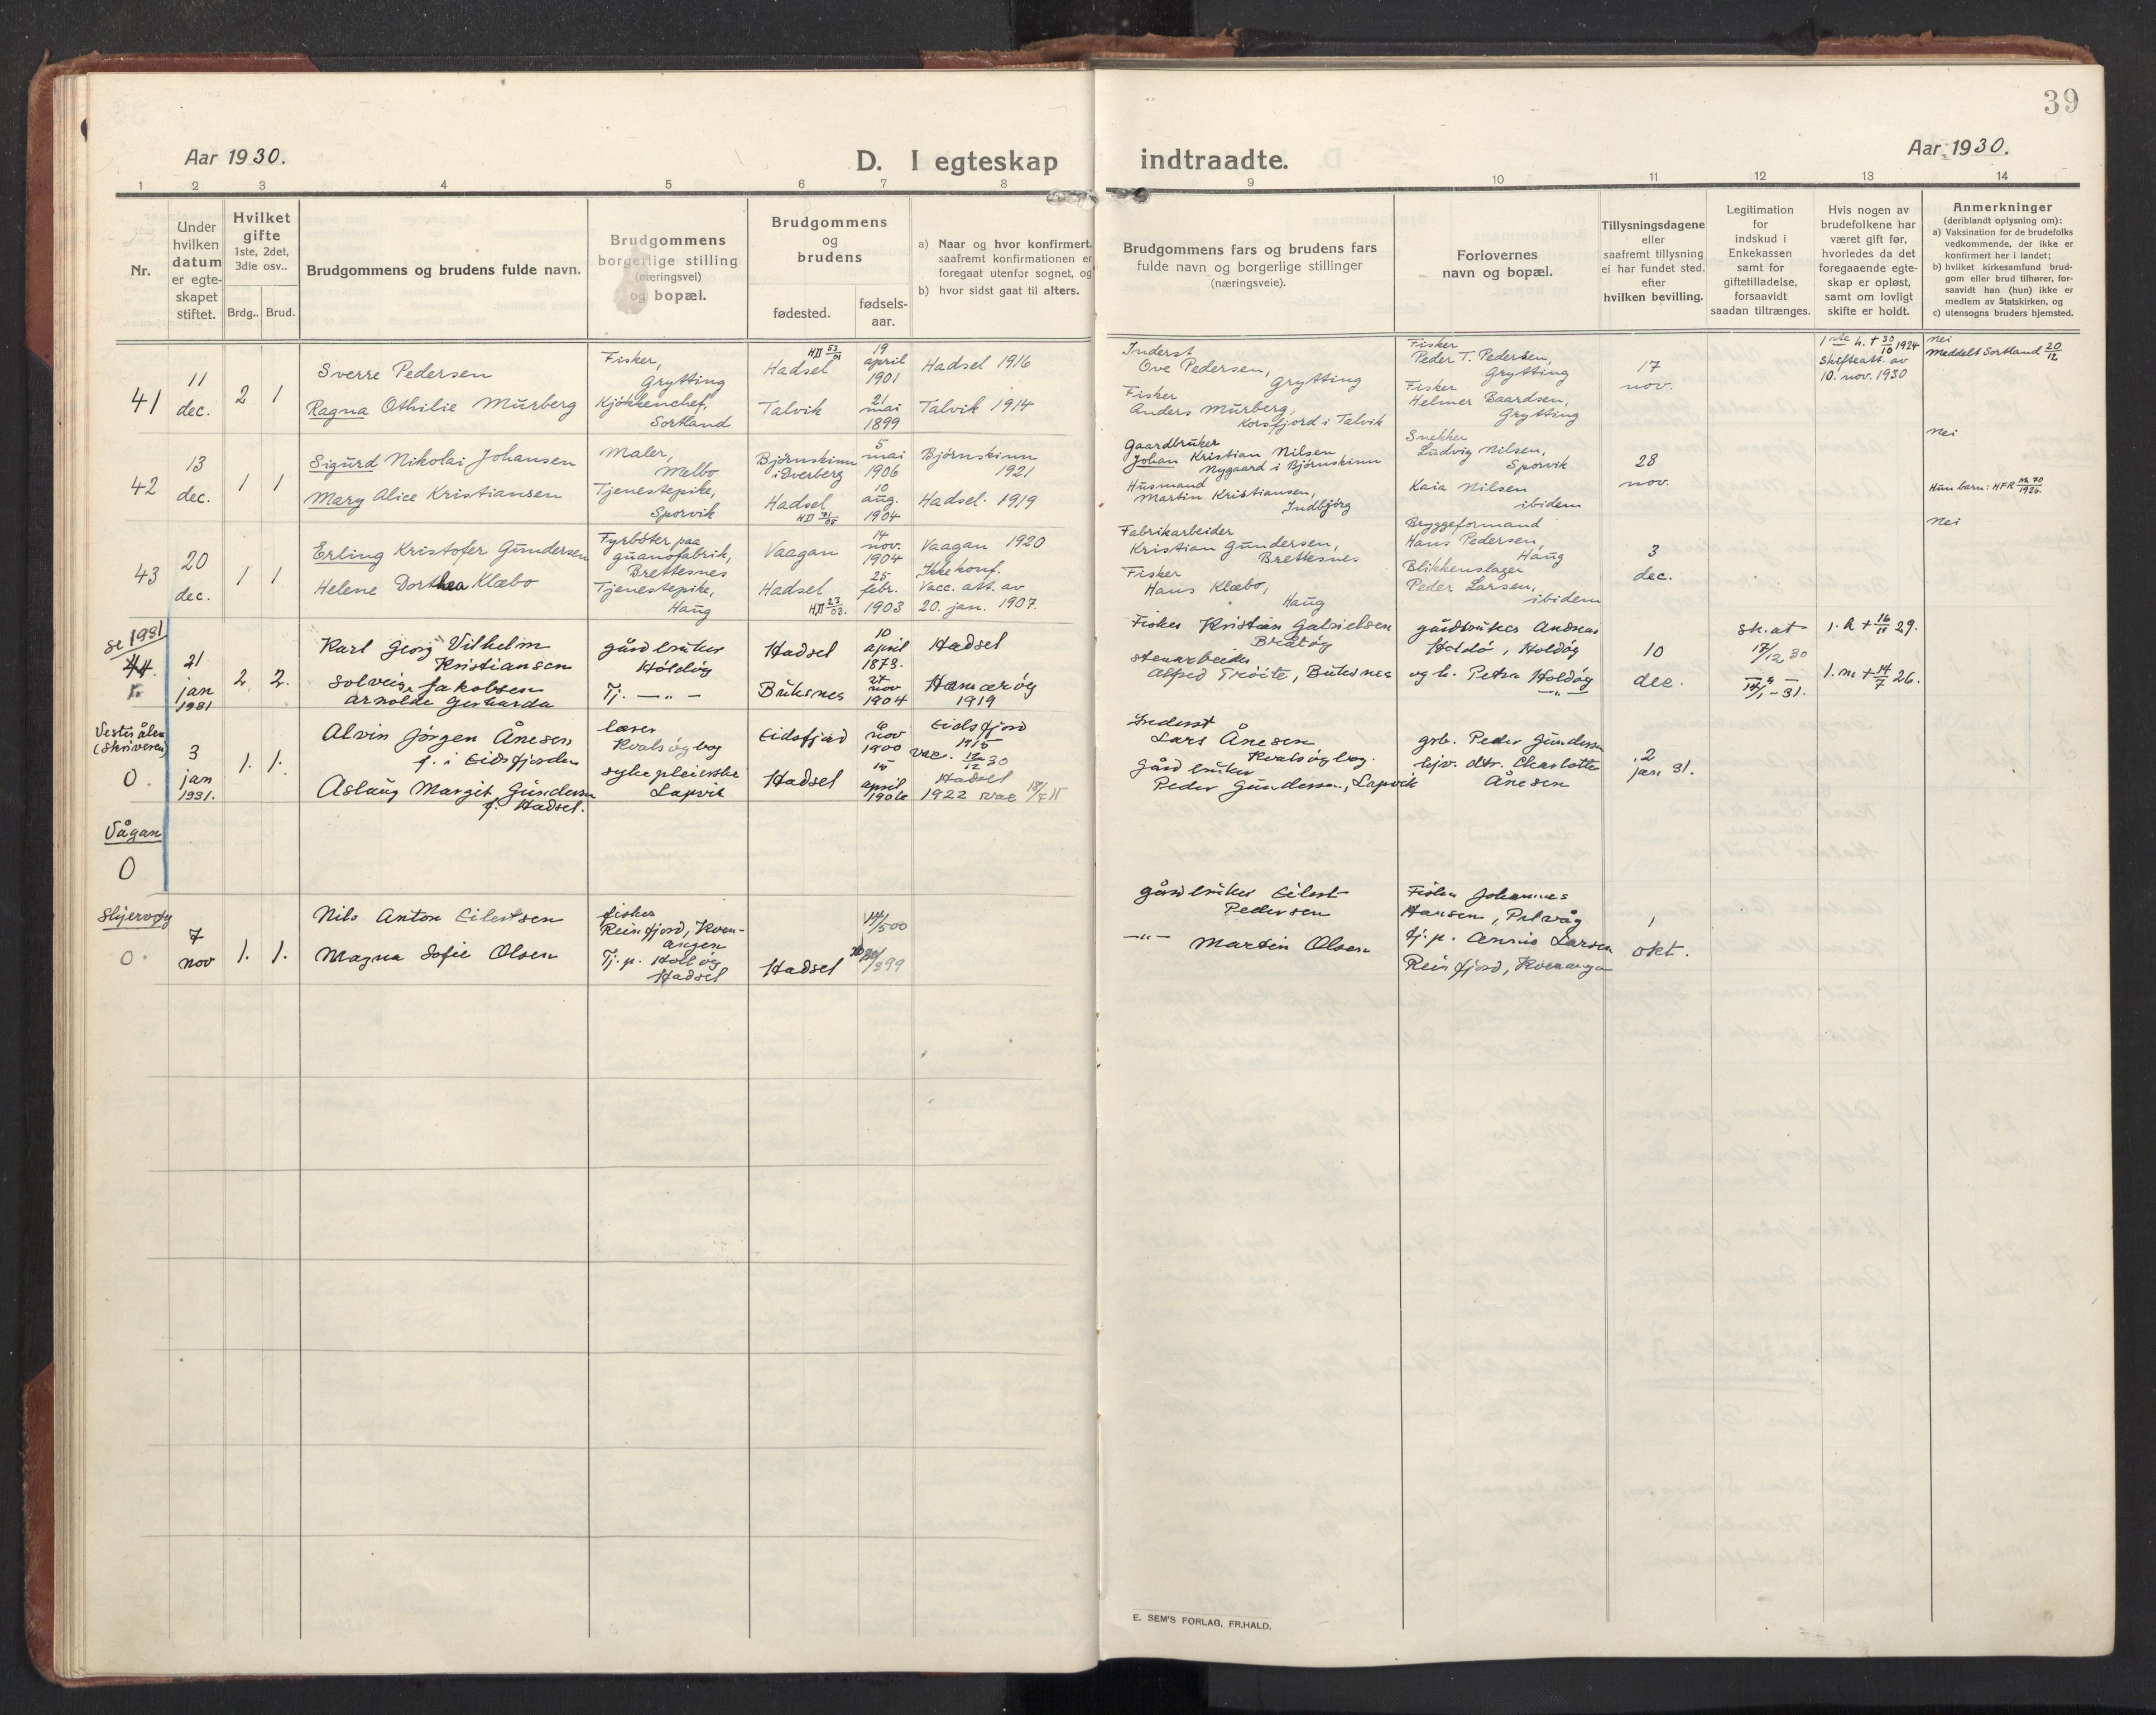 39
Aar 1930.
D. I egteskap
indtraadte.
Aar 1930.
1 2 3 4 5 6 7 8 9 10 11 12 13 14
Nr.
Under
hvilken
datum
er egte-
skapet
stiftet.
Hvilket
gifte
1ste, 2det,
3die osv..
Brdg.. Brud.
Brudgommens og brudens fulde navn.
Brudgommens
borgerlige stilling
(næringsvei)
og bopæl.
Brudgommens
og
brudens
fødested.
fødsels-
aar.
a) Naar og hvor konfirmert,
saafremt konfirmationen er
foregaat utenfor sognet, og
b) hvor sidst gaat til alters.
Brudgommens fars og brudens fars
fulde navn og borgerlige stillinger
(næringsveie).
Forlovernes
navn og bopæl.
Tillysningsdagene
eller
saafremt tillysning
ei har fundet sted.
efter
hvilken bevilling.
Legitimation
for
indskud i
Enkekassen
samt for
giftetilladelse,
forsaavidt
saadan tiltrænges.
Hvis nogen av
brudefolkene har
været gift før,
hvorledes da det
foregaaende egte-
skap er opløst,
samt om lovligt
skifte er holdt.
Anmerkninger
(deriblandt oplysning om):
a) Vaksination for de brudefolks
vedkommende, der ikke er
konfirmert her i landet;
b) hvilket kirkesamfund brud-
gom eller brud tilhører, for-
saavidt han (hun) ikke er
medlem av Statskirken, og
c) utensogns bruders hjemsted.
41
11
dec.
2 1
Sverre Pedersen
Ragna Othilie Murberg
Fisker,
Grytting
Kjøkkenchef,
Sortland
HD 53/01
Hadsel
Talvik
19
april
1901
21
mai
1899
Hadsel 1916
Talvik 1914
Inderst
Ove Pedersen,
Grytting
Fisker
Anders Murberg,
Korsfjord i Talvik
Fisker
Peder T. Pedersen,
Grytting
Fisker
Helmer Baardsen,
Grytting
17
nov.
1ste h. + 30/10 1924
Skifteatt. av
10. nov. 1930
Nei
Meddelt Sortland 20/12
42
13
dec.
1 1
Sigurd Nikolai Johansen
Mary Alice Kristiansen
Maler,
Melbo
Tjenestepike,
Sporvik
Bjørnskinn
i Dverberg
Hadsel
HD 71/05
5
mai
1906
10
aug.
1904
Bjørnskinn
1921
Hadsel. 1919
Gaardbruker
Johan Kristian Nilsen
Nygaard i Bjørnskinn
Husmand
Martin Kristiansen,
Indbjørg
Snekker
Ludvig Nilsen,
Sporvik
Kaia Nilsen
ibidem
28
nov.
Nei
Hun barn: HFR Nr. 70/1926.
43
20
dec.
1 1
Erling Kristofer Gundersen
Helene Dorthea Klæbo
Fyrbøter paa
guanofabrik,
Brettesnes
Tjenestepike,
Haug
Vaagan
Hadsel
HD 23/03.
14
nov.
1904
25
febr.
1903
Vaagan 1920
Ikke konf.
Vacc. att. av
20. jan. 1907.
Fabrikarbeider
Kristian Gundersen,
Brettesnes
Fisker
Hans Klæbo,
Haug
Bryggeformand
Hans Pedersen,
Haug
Blikkenslager
Peder Larsen,
ibidem
3
dec.
Nei
se 1931
44.
21
jan
1931
2. 2.
Karl Georg Vilhelm
Kristiansen
Solveig Jakobsen
Arnolde Gerharda
gårdbruker
Holdøy
Tj. — " —
Hadsel
Buksnes
10
april
1873.
27
nov
1904
Hadsel
Hamarøy
1919
Fisker Kristian Gabrielsen
Bratøy
Stenarbeider
Alfred Trøite, Buksnes
gårdbruker Andreas
Holdø, Holdøy
og h. Petra Holdøy
— " —
10
dec.
sk. at
17/12 30
— " —
14/1 – 31.
1. h + 16/11 29.
1. m + 14/7 26.
Vesterålen
(Skriveren)
0.
3
jan
1931.
1. 1.
Alvin Jørgen Ånesen
f. i Eidsfjorden
Aslaug Margit Gundersen
f. Hadsel.
lærer
Kvalsøybog
sykepleierske
Lapvik
Eidsfjord
Hadsel
6
nov
1900
15
april
1906
Eidsfjord
1915
vac. 16/12 30
Hadsel
1922 vac
Inderst
Lars Ånesen
Kvalsøybog.
Gårdbruker
Peder Gundersen, Lapvik
grb. Peder Gundersen
hjv. dtr. Charlotte
Ånesen
2
jan 31.
Vågan
0
Skjervøy
0.
7
nov
1. 1.
Nils Anton Eilertsen
Magna Sofie Olsen
fisker
Reinfjord, Kvæn-
angen
Tj. p. Holdøy
Hadsel
Hadsel
14/5 00
gårdbruker Eilert
Pedersen
— " — Martin Olsen
Fisker Johannes
Hansen,
tj. p. Annie Larsen
Reinfjord, Kvænangen
1
okt.
E. SEM'S FORLAG, FR.HALD.